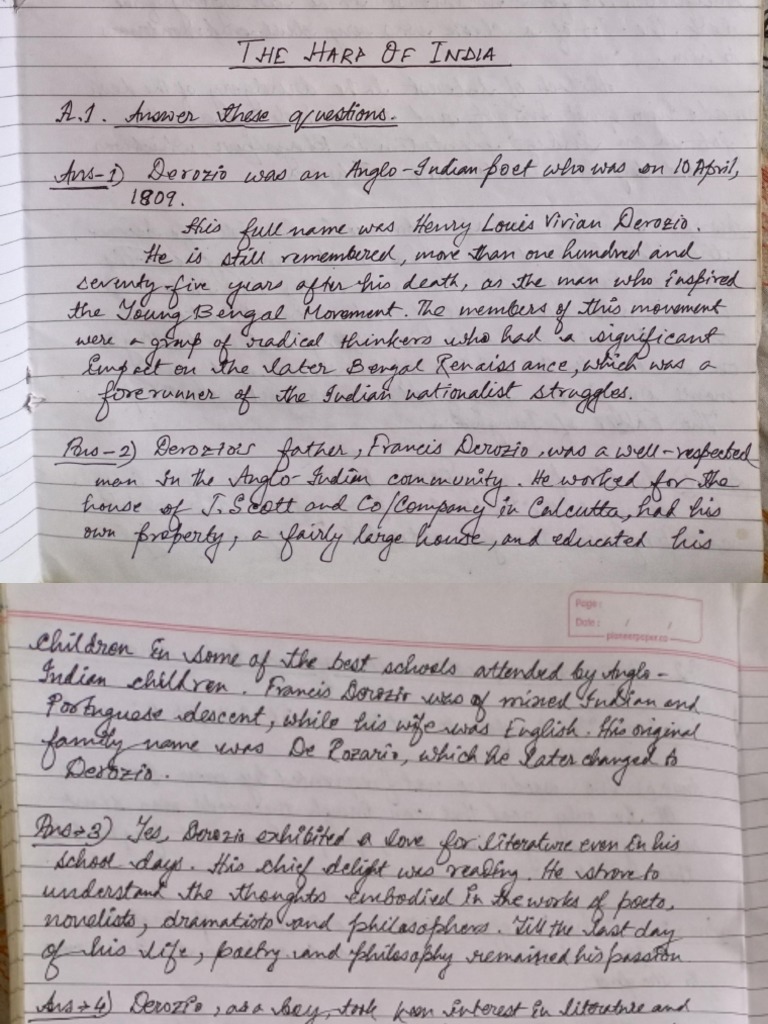 THE HARP OF INDIA
A.1. Answer these questions.
Ans-1) Derozio was an Anglo-Indian poet who was on 10 April,
1809.
His full name was Henry Louis Vivian Derozio.
He is still remembered, more than one hundred and
seventy-five years after his death, as the man who inspired
the Young Bengal Movement. The members of this movement
were a group of radical thinkers who had a significant
impact on the later Bengal Renaissance, which was a
forerunner of the Indian nationalist struggles.
Ans-2) Derozio's father, Francis Derozio, was a well-respected
man in the Anglo-Indian community. He worked for the
house of J. Scott and Co/Company in Calcutta, had his
own property, a fairly large house, and educated his
Page:
Date: / /
pioneerpaper.co
children in some of the best schools attended by Anglo-
Indian children. Francis Derozio was of mixed Indian and
Portuguese descent, while his wife was English. His original
family name was De Rozario, which he later changed to
Derozio.
Ans→3) Yes, Derozio exhibited a love for literature even in his
school days. His chief delight was reading. He strove to
understand the thoughts embodied in the works of poets,
novelists, dramatists and philosophers. Till the last day
of his life, poetry and philosophy remained his passion
Ans→4) Derozio, as a boy, took keen interest in literature and